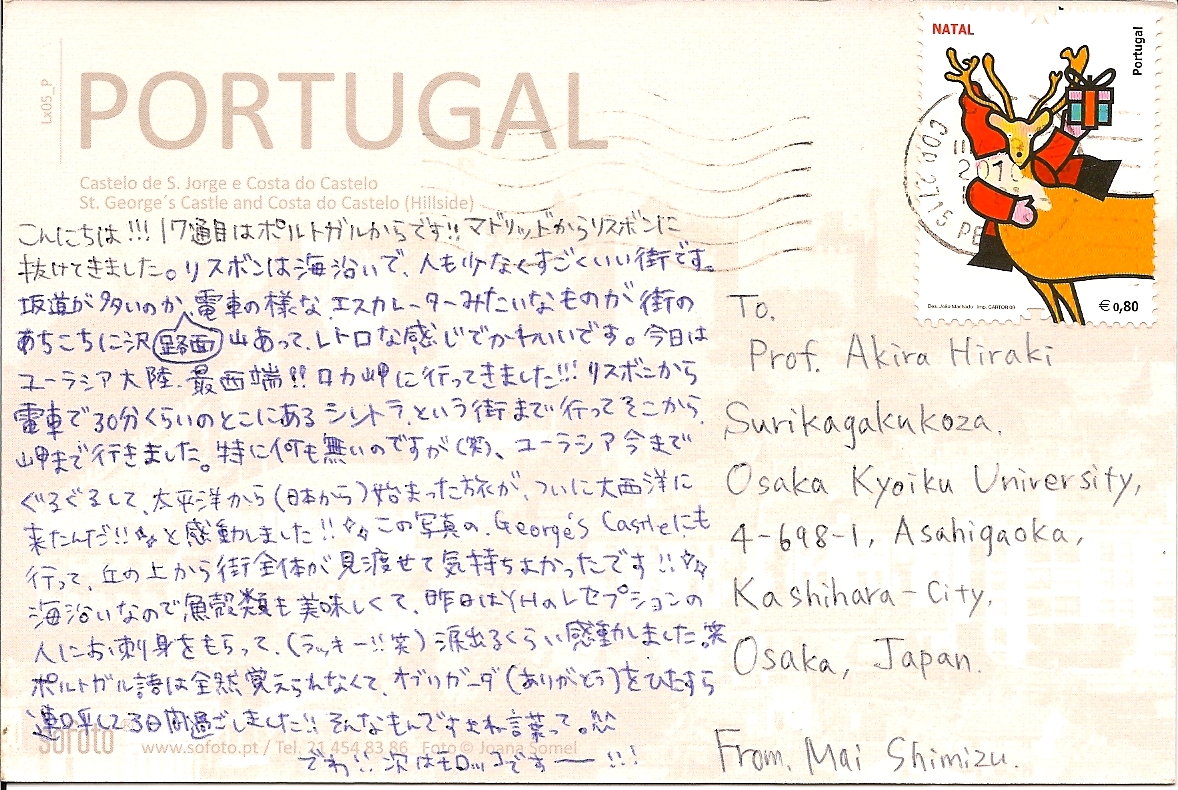 PORTUGAL
Lx05_P
Castelo de S. Jorge e Costa do Castelo
St. George´s Castle and Costa do Castelo (Hillside)
こんにちは!!! 17通目はポルトガルからです!! マドリッドからリスボンに
抜けてきました。リスボンは海沿いで、人も少なくすごくいい街です。
坂道が多いのか、電車の様な エスカレーターみたいなものが 街の
あちこちに沢 路面 山あって、レトロな感じでかわいいです。今日は
ユーラシア大陸 最西端!! ロカ岬に行ってきました!!! リスボンから
電車で30分くらいのとこにある シントラ という街まで行ってそこから
岬まで行きました。特に何も無いのですが(笑)、ユーラシア今まで
ぐるぐるして、太平洋から(日本から)始まった旅が、ついに大西洋に
来たんだ!! と感動しました!! この写真の George's Castleにも
行って、丘の上から街全体が見渡せて気持ちよかったです!!
海沿いなので魚殻類も美味しくて、昨日はYHのレセプションの
人にお刺身をもらって、(ラッキー!! 笑) 涙出るくらい感動しました。笑
ポルトガル語は全然覚えられなくて、オブリガーダ(ありがとう)をひたすら
連呼して3日間過ごしました!! そんなもんですよね言葉って。
でわ!! 次はモロッコですー!!!
sofoto www.sofoto.pt / Tel. 21 454 83 86 Foto © Joana Somel
NATAL
Portugal
2010
Des. João Machado Imp. CARTOR 09
€ 0,80
To,
Prof. Akira Hiraki
Surikagakukoza,
Osaka Kyoiku University,
4-698-1, Asahigaoka,
Kashihara-City,
Osaka, Japan.
From, Mai Shimizu.